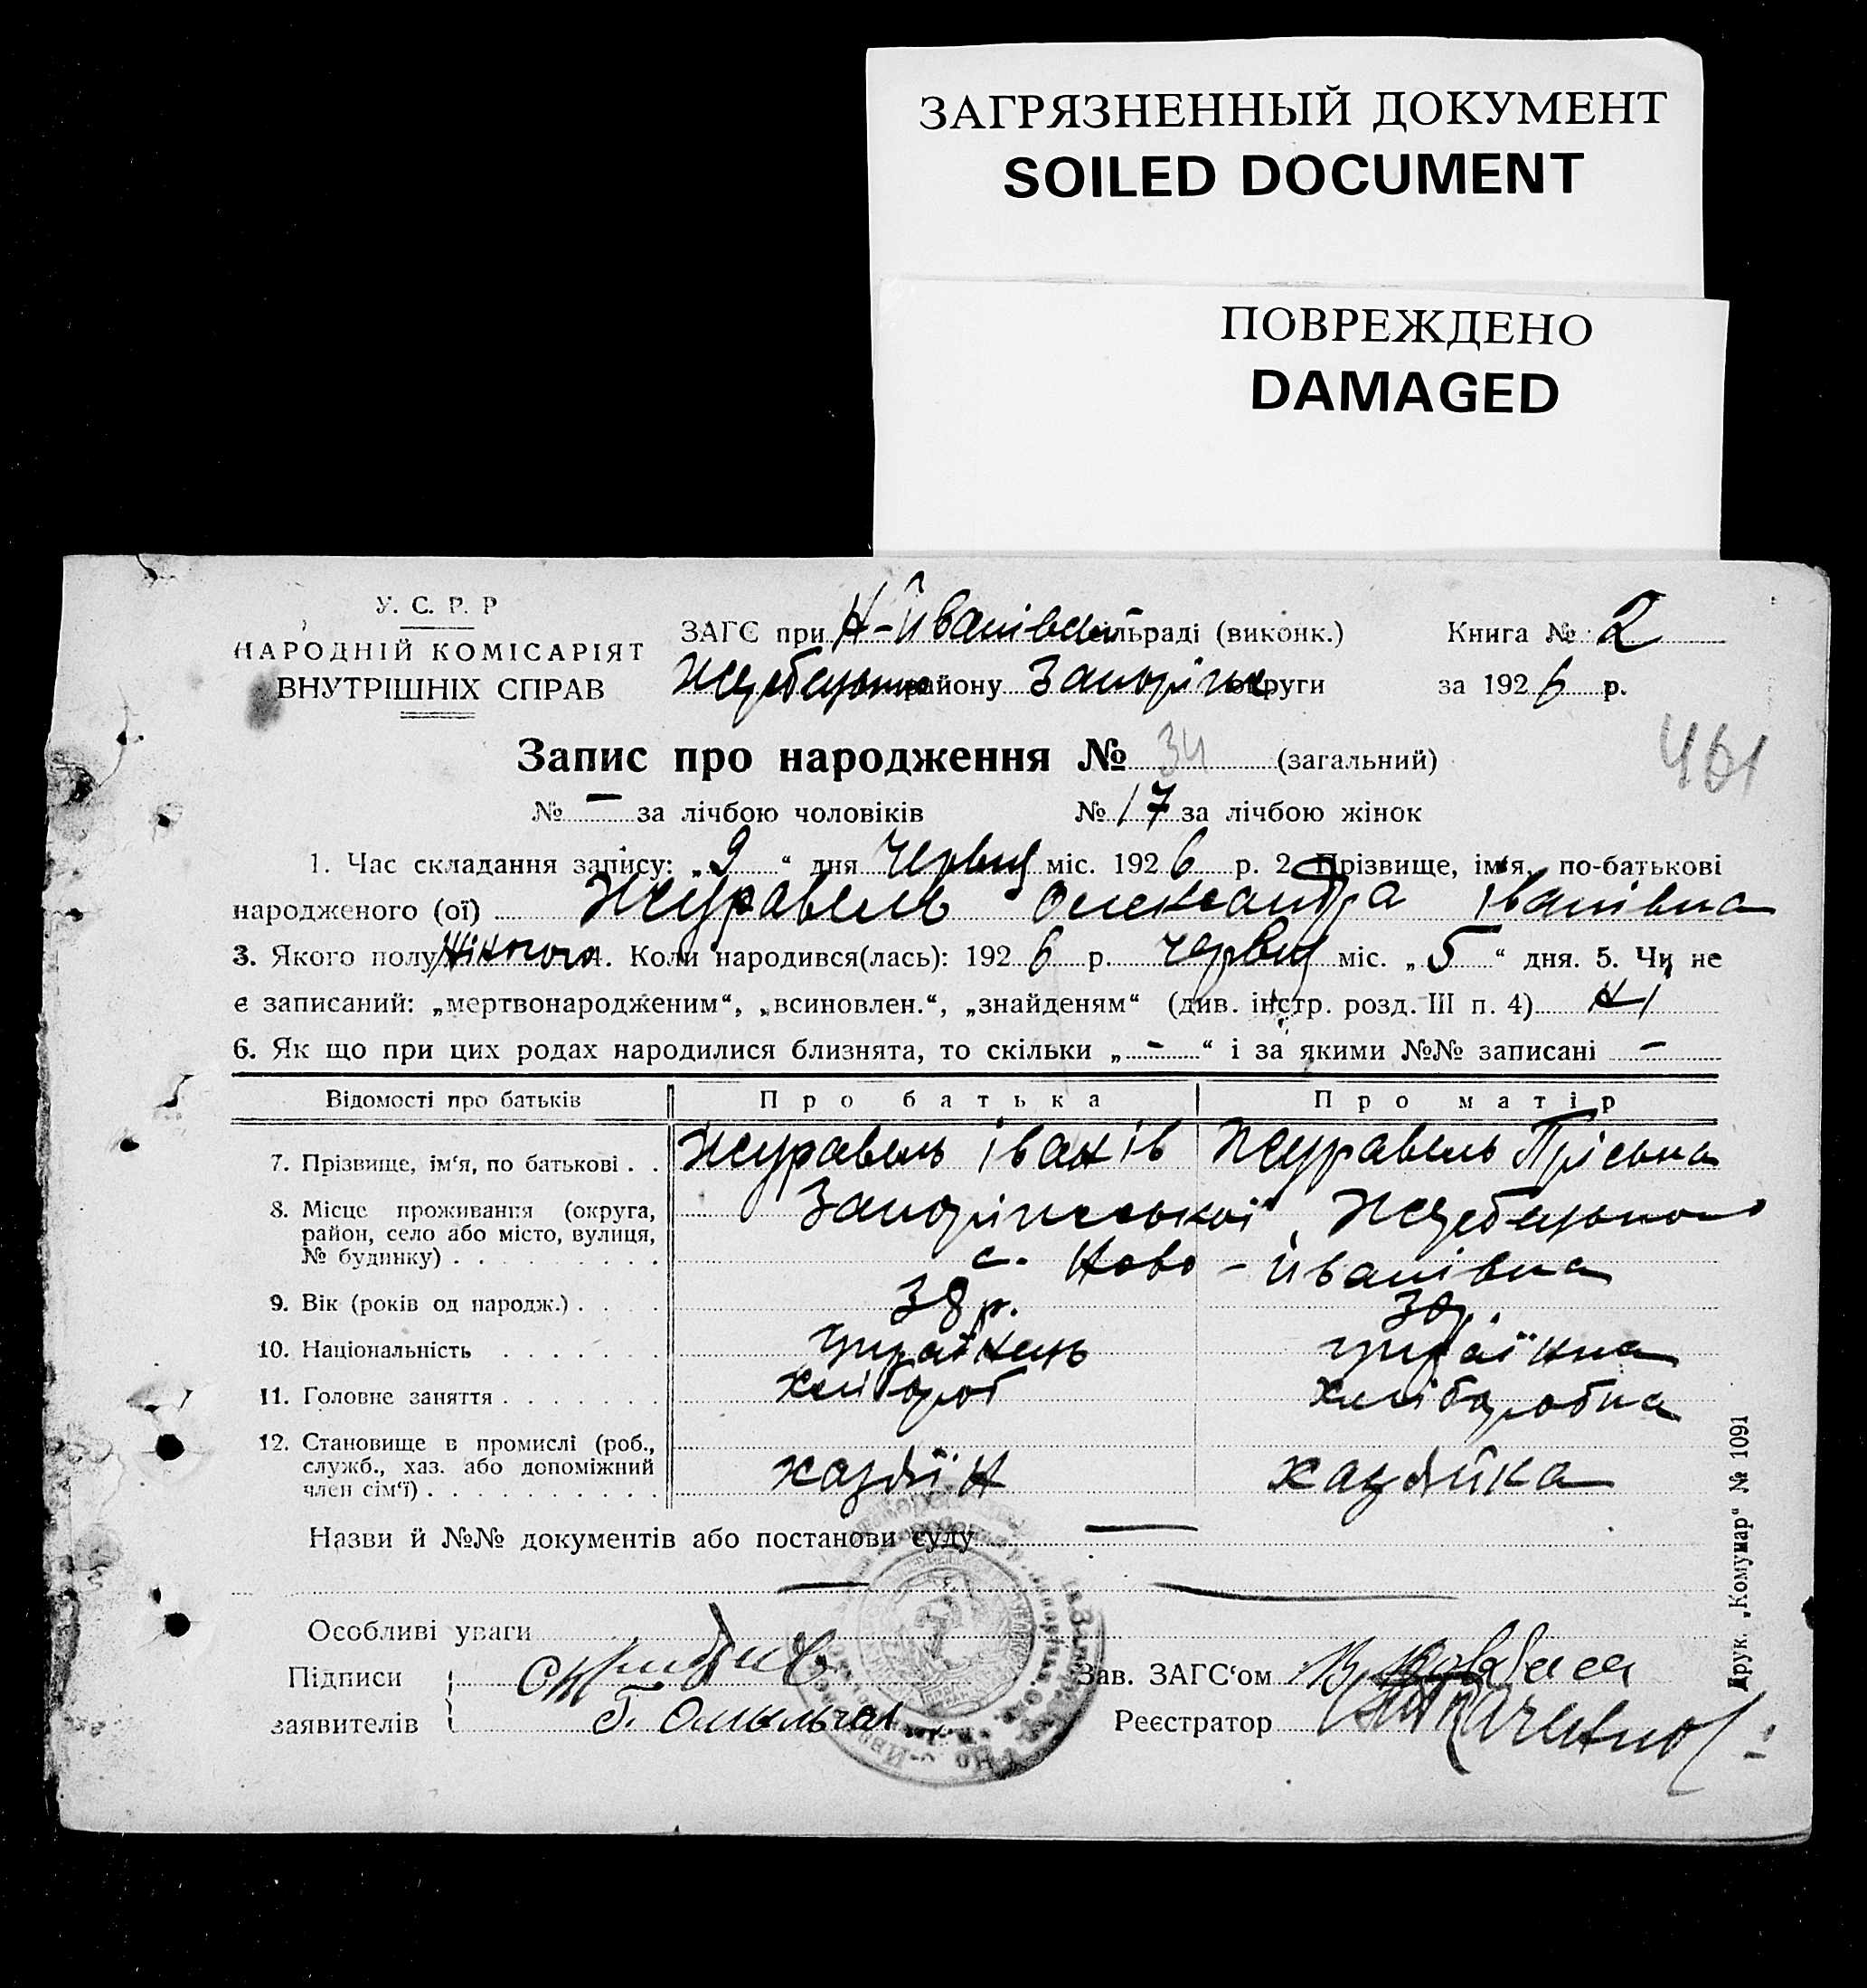 ЗАГРЯЗНЕННЫЙ ДОКУМЕНТ
SOILED DOCUMENT
ПОВРЕЖДЕНО
DAMAGED
У. С. Р. Р
НАРОДНІЙ КОМІСАРІЯТ
ВНУТРІШНІХ СПРАВ
ЗАГС при Н-Иванівській сільраді (виконк.) Книга № 2
Жеребецького району Запоріжж округи за 1926 р.
Запис про народження № 34 (загальний)
461
№ – за лічбою чоловіків № 17 за лічбою жінок
1. Час складання запису: „9“ дня Червця міс. 1926 р. 2. Прізвище, ім'я, по-батькові
народженого (ої) Журавель Олександра Іванівна
3. Якого полу жіночого 4. Коли народився(лась): 1926 р. Червця міс. „5“ дня. 5. Чи не
є записаний: „мертвонародженим“, „всиновлен.“, „знайденям“ (див. інстр. розд. III п. 4) Ні
6. Як що при цих родах народилися близнята, то скільки „-“ і за якими №№ записані -
Відомості про батьків Про батька Про матір
7. Прізвище, ім'я, по батькові . . Журавель Іван Ів Журавель Пріська
8. Місце проживання (округа, район, село або місто, вулиця, № будинку) Запоріжської, Жеребецького
с. Ново-Иванівка
9. Вік (років од народж.) 38 р. 38 р.
10. Національність українець українка
11. Головне заняття хлібороб хліборобка
12. Становище в промислі (роб., служб., хаз. або допоміжний член сім'ї) хазяїн хазяйка
Назви й №№ документів або постанови суду —
Особливі уваги
Підписи Зав. ЗАГС'ом
заявителів Реєстратор
Друк. „Комунар“ № 1091